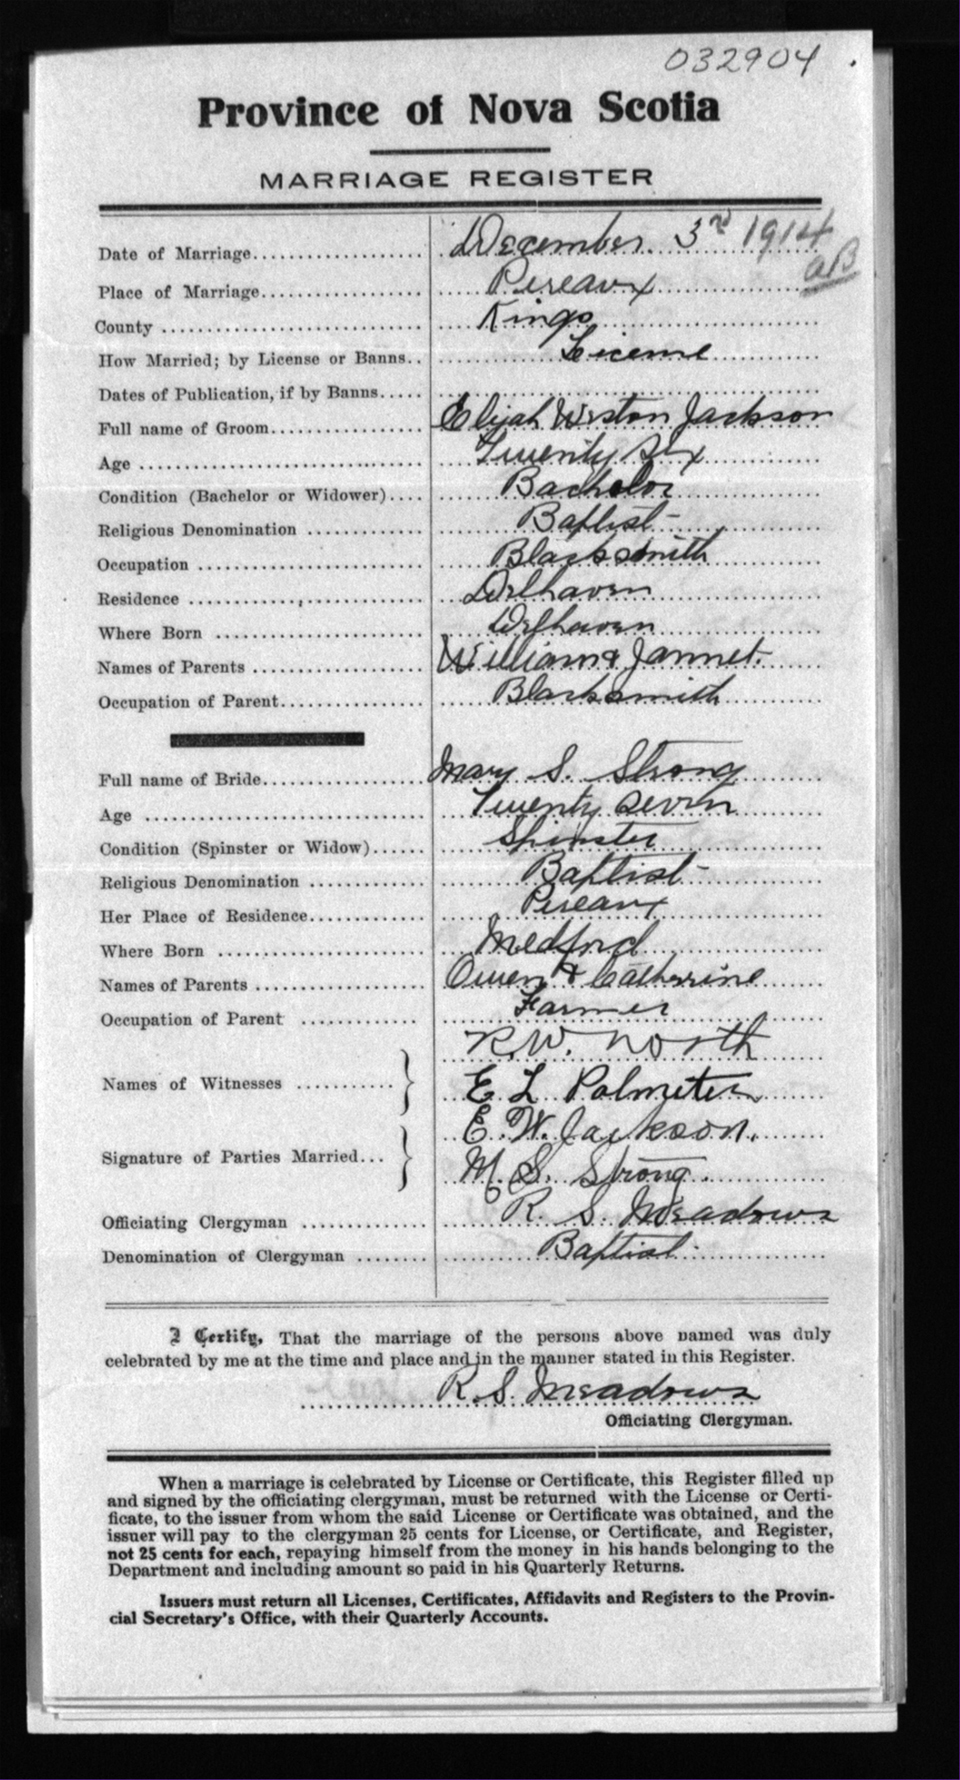 032904
Province of Nova Scotia
MARRIAGE REGISTER
Date of Marriage December 3rd 1914
aB
Place of Marriage Pereaux
County Kings
How Married; by License or Banns License
Dates of Publication, if by Banns
Full name of Groom Elijah Weston Jackson
Age Twenty Six
Condition (Bachelor or Widower) Bachelor
Religious Denomination Baptist
Occupation Blacksmith
Residence Delhaven
Where Born Delhaven
Names of Parents William & Jannet
Occupation of Parent Blacksmith
Full name of Bride Mary S. Strong
Age Twenty Seven
Condition (Spinster or Widow) Spinster
Religious Denomination Baptist
Her Place of Residence Pereaux
Where Born Medford
Names of Parents Owen & Catherine
Occupation of Parent Farmer
Names of Witnesses R.W. North
E L Palmeter
Signature of Parties Married E. W. Jackson.
M. S. Strong
Officiating Clergyman R. S. Meadows
Denomination of Clergyman Baptist
I Certify, That the marriage of the persons above named was duly
celebrated by me at the time and place and in the manner stated in this Register.
R. S. Meadows
Officiating Clergyman.
When a marriage is celebrated by License or Certificate, this Register filled up
and signed by the officiating clergyman, must be returned with the License or Certi-
ficate, to the issuer from whom the said License or Certificate was obtained, and the
issuer will pay to the clergyman 25 cents for License, or Certificate, and Register,
not 25 cents for each, repaying himself from the money in his hands belonging to the
Department and including amount so paid in his Quarterly Returns.
Issuers must return all Licenses, Certificates, Affidavits and Registers to the Provin-
cial Secretary's Office, with their Quarterly Accounts.